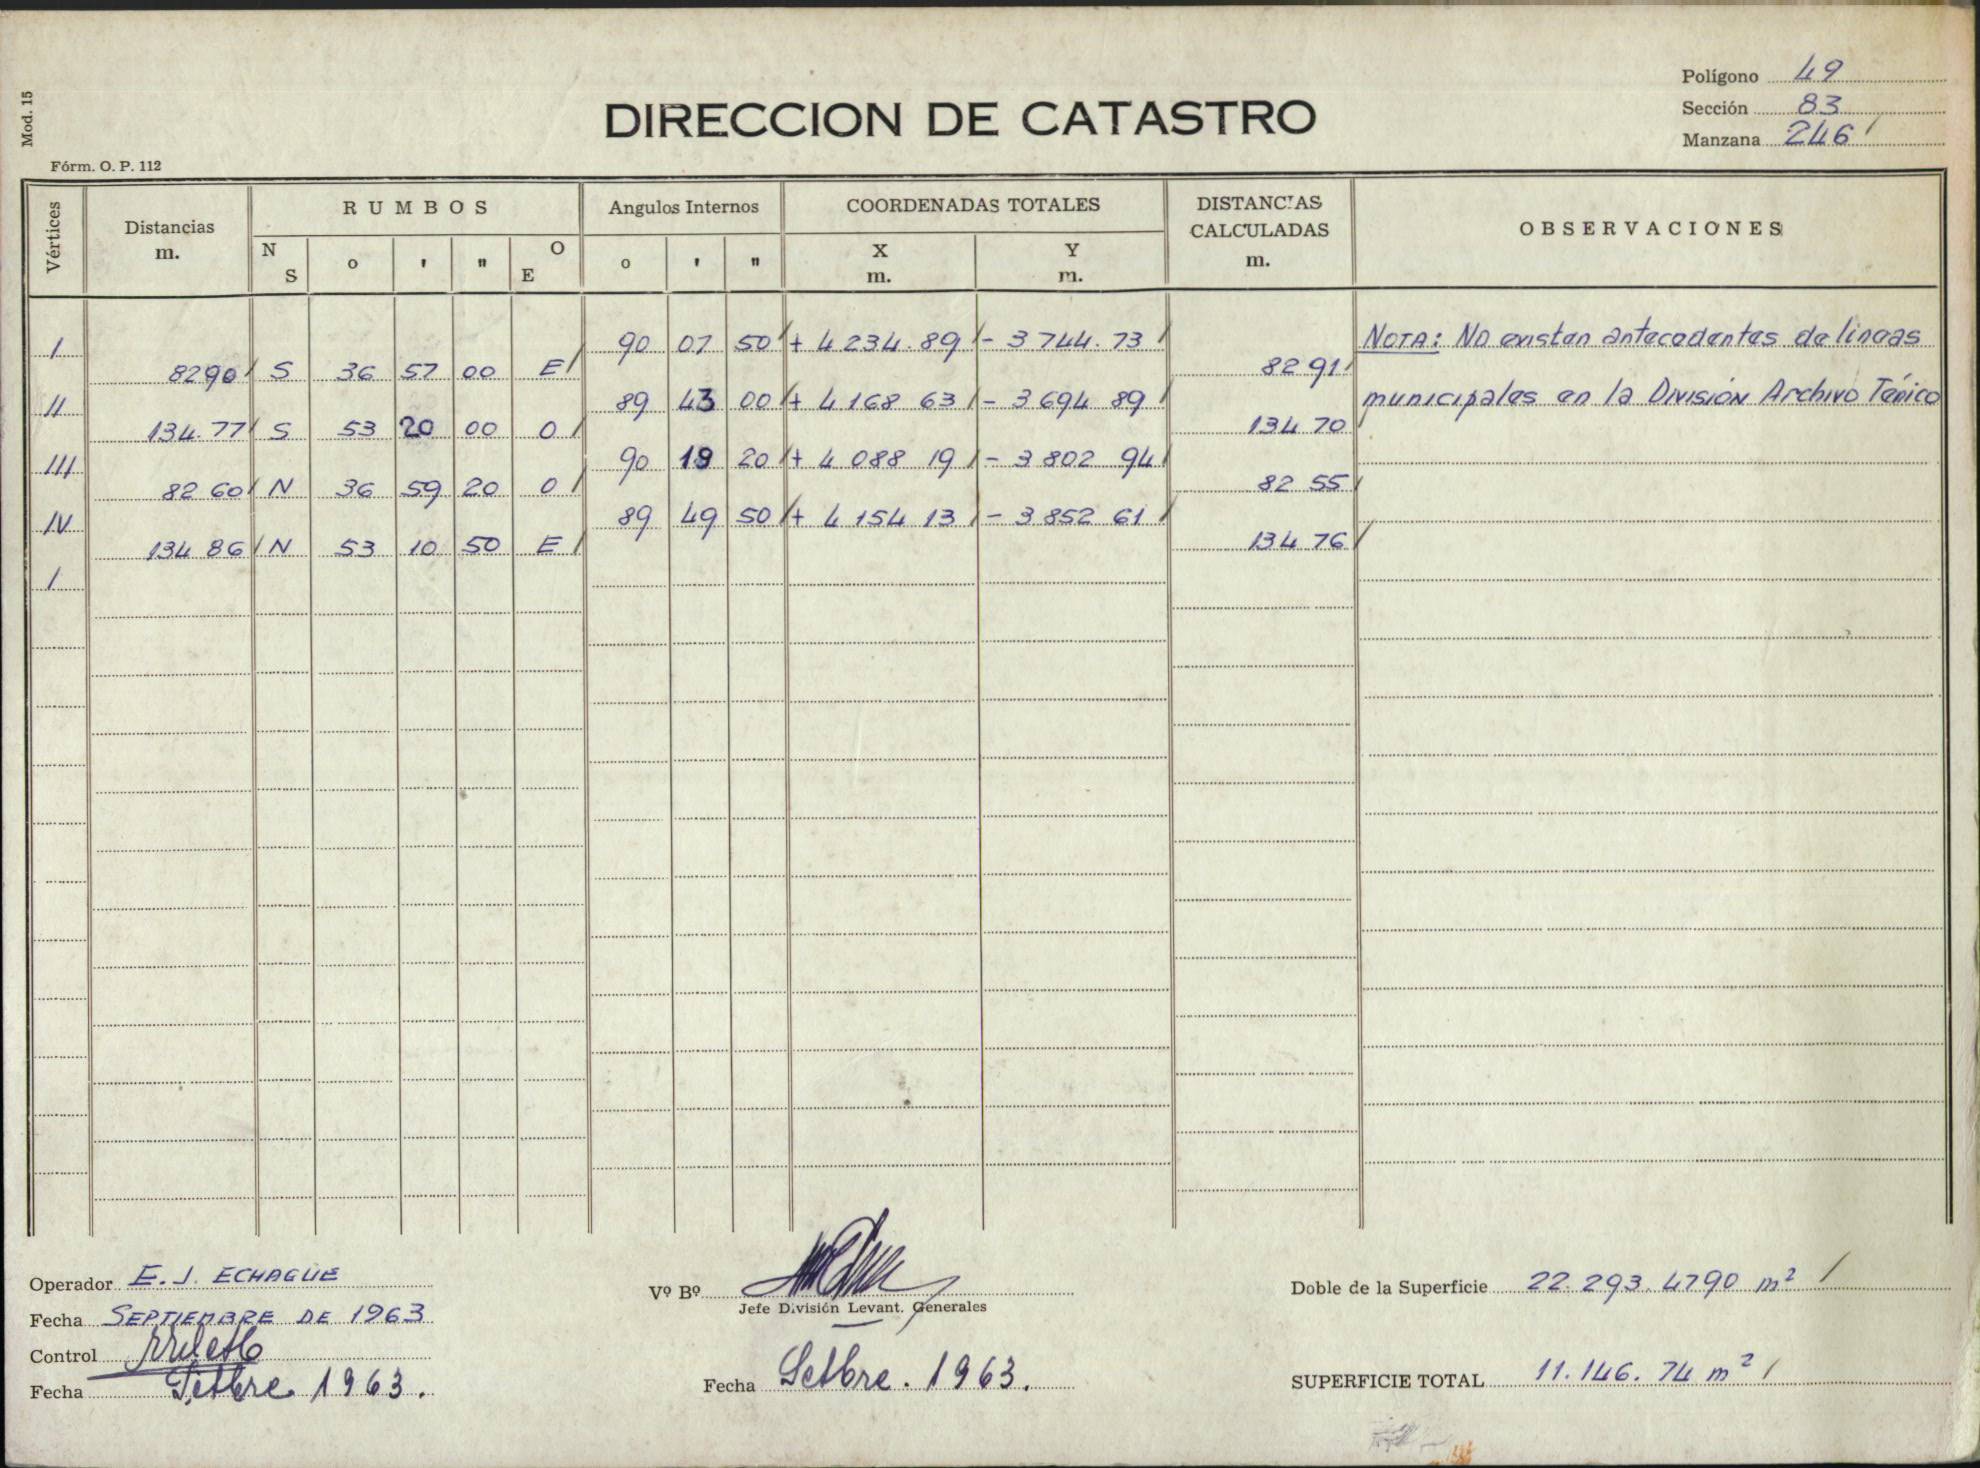 Mod. 15
Fórm. O. P. 112
DIRECCION DE CATASTRO
Polígono 49
Sección 83
Manzana 246
Vértices Distancias m. RUMBOS Angulos Internos COORDENADAS TOTALES DISTANCIAS CALCULADAS m. OBSERVACIONES
N S o ' " O E o ' " X m. Y m.
I 90 07 50 + 4 234.89 - 3 744.73 NOTA: No existen antecedentes de lineas
82 90 S 36 57 00 E 82 91
II 89 43 00 + 4 168 63 - 3 694 89 municipales en la División Archivo Ténico
134.77 S 53 20 00 O 134 70
III 90 19 20 + 4 088 19 - 3 802 94
82 60 N 36 59 20 O 82 55
IV 89 49 50 + 4 154 13 - 3 852 61
134 86 N 53 10 50 E 134 76
I
Operador E. J. ECHAGÜE
Fecha SEPTIEMBRE DE 1963
Control
Fecha Setbre 1963.
Vº Bº
Jefe División Levant. Generales
Fecha Setbre. 1963.
Doble de la Superficie 22.293.4790 m²
SUPERFICIE TOTAL 11.146.74 m²